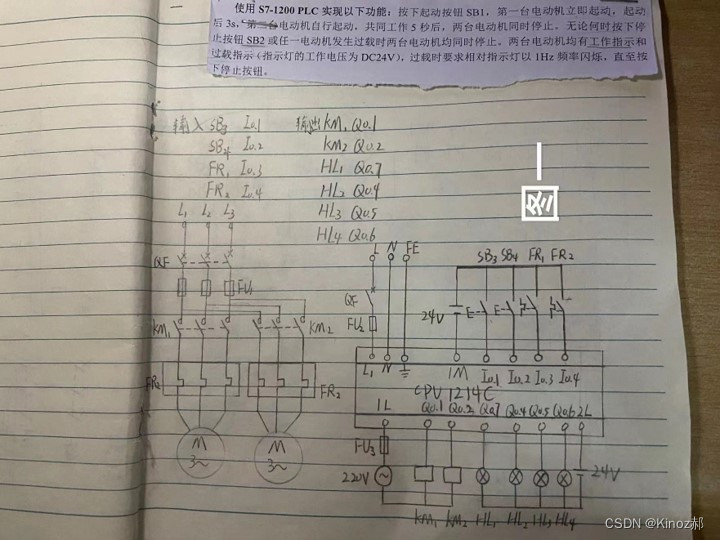 使用 S7-1200 PLC 实现以下功能：按下起动按钮 SB1，第一台电动机立即起动，起动
后 3s，第二台电动机自行起动，共同工作 5 秒后，两台电动机同时停止。无论何时按下停
止按钮 SB2 或任一电动机发生过载时两台电动机均同时停止。两台电动机均有工作指示和
过载指示（指示灯的工作电压为 DC24V），过载时要求相对指示灯以 1Hz 频率闪烁，直至按
下停止按钮。
输入 SB3 I0.1 输出 KM1 Q0.1
SB4 I0.2 KM2 Q0.2
FR1 I0.3 HL1 Q0.7
FR2 I0.4 HL2 Q0.4
HL3 Q0.5
HL4 Q0.6
L1 L2 L3
QF
FU1
KM1 KM2
FR2 FR2
M
3~
M
3~
L N FE
QF
FU2
SB3 SB4 FR1 FR2
24V
E E
L1 N 1M I0.1 I0.2 I0.3 I0.4
CPU 1214C
1L Q0.1 Q0.2 Q0.7 Q0.4 Q0.5 Q0.6 2L
FU3
220V
24V
KM1 KM2 HL1 HL2 HL3 HL4
CSDN @Kinoz郝